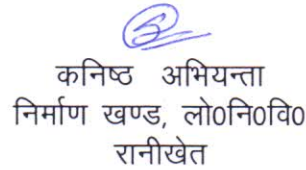 कनिष्ठ अभियन्ता
निर्माण खण्ड, लो0नि0वि0
रानीखेत